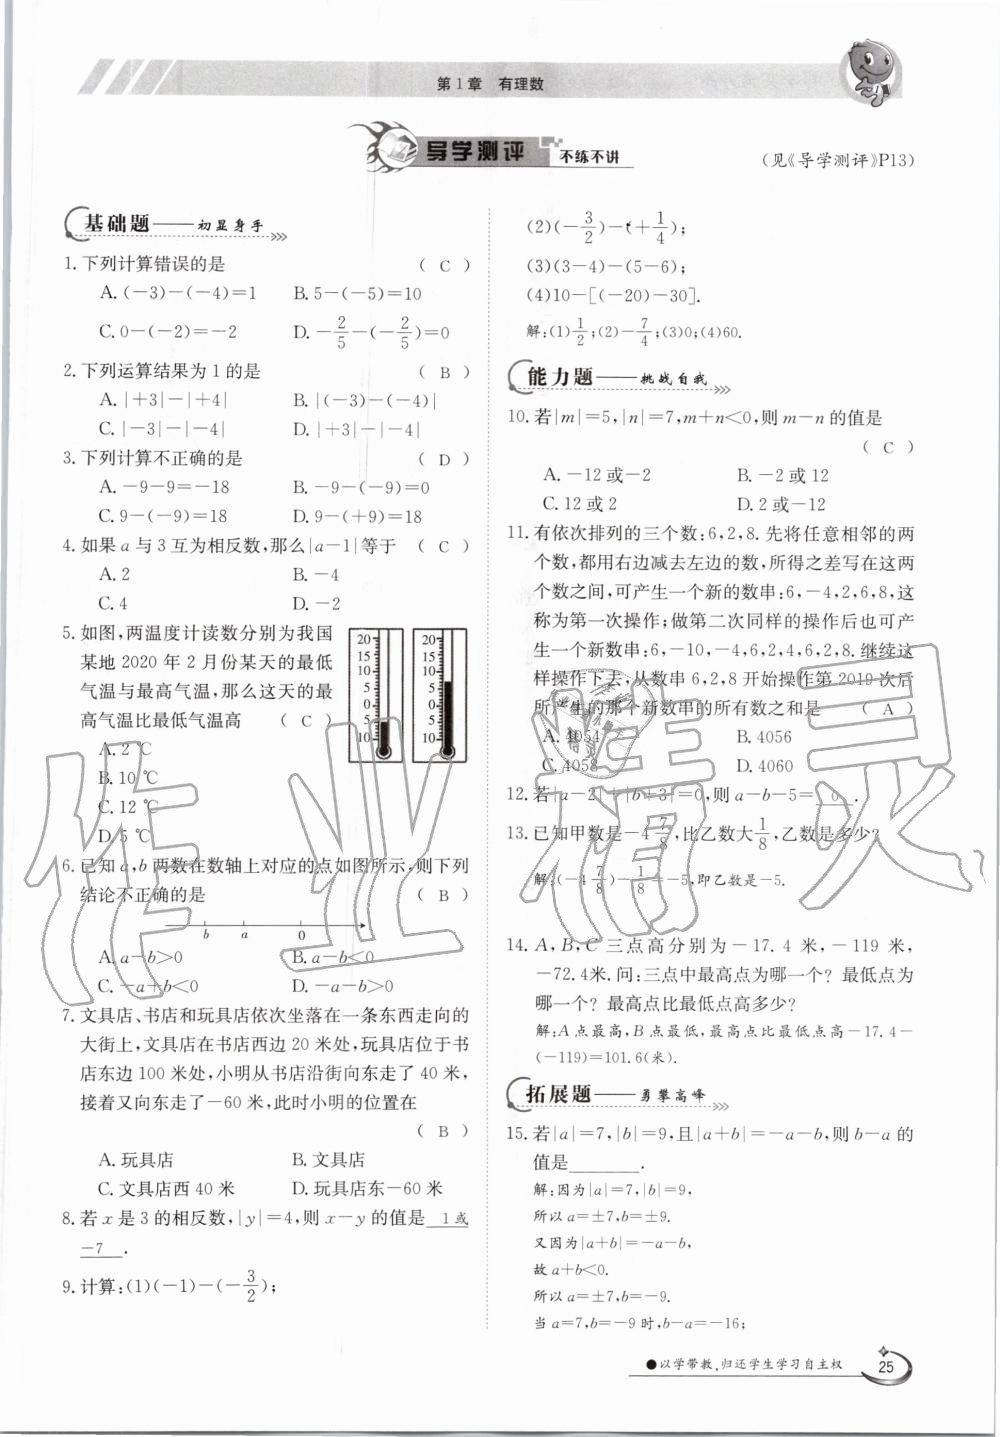 第1章 有理数
导学测评 不练不讲
(见《导学测评》P13)
基础题——初显身手
1.下列计算错误的是 ( C )
A.(-3)-(-4)=1 B.5-(-5)=10
C.0-(-2)=-2 D.-2/5-(-2/5)=0
2.下列运算结果为1的是 ( B )
A.|+3|-|+4| B.|(-3)-(-4)|
C.|-3|-|-4| D.|+3|-|-4|
3.下列计算不正确的是 ( D )
A.-9-9=-18 B.-9-(-9)=0
C.9-(-9)=18 D.9-(+9)=18
4.如果a与3互为相反数,那么|a-1|等于 ( C )
A.2 B.-4
C.4 D.-2
5.如图,两温度计读数分别为我国
某地2020年2月份某天的最低
气温与最高气温,那么这天的最
高气温比最低气温高 ( C )
A.2 ℃
B.10 ℃
C.12 ℃
D.5 ℃
20 20
15 15
10 10
5 5
0 0
5 5
10 10
6.已知a,b两数在数轴上对应的点如图所示,则下列
结论不正确的是 ( B )
b a 0
A.a-b>0 B.a-b<0
C.-a+b<0 D.-a-b>0
7.文具店、书店和玩具店依次坐落在一条东西走向的
大街上,文具店在书店西边20米处,玩具店位于书
店东边100米处,小明从书店沿街向东走了40米,
接着又向东走了-60米,此时小明的位置在
( B )
A.玩具店 B.文具店
C.文具店西40米 D.玩具店东-60米
8.若x是3的相反数,|y|=4,则x-y的值是 1或
-7 .
9.计算:(1)(-1)-(-3/2);
(2)(-3/2)-(+1/4);
(3)(3-4)-(5-6);
(4)10-[(-20)-30].
解:(1)1/2;(2)-7/4;(3)0;(4)60.
能力题——挑战自我
10.若|m|=5,|n|=7,m+n<0,则m-n的值是
( C )
A.-12或-2 B.-2或12
C.12或2 D.2或-12
11.有依次排列的三个数:6,2,8.先将任意相邻的两
个数,都用右边减去左边的数,所得之差写在这两
个数之间,可产生一个新的数串:6,-4,2,6,8,这
称为第一次操作;做第二次同样的操作后也可产
生一个新数串:6,-10,-4,6,2,4,6,2,8.继续这
样操作下去,从数串6,2,8开始操作第2019次后
所产生的那个新数串的所有数之和是 ( A )
A.4054 B.4056
C.4058 D.4060
12.若|a-2|+|b+3|=0,则a-b-5= 0 .
13.已知甲数是-4 7/8,比乙数大1/8,乙数是多少?
解:(-4 7/8)-1/8=-5,即乙数是-5.
14.A,B,C三点高分别为-17.4米,-119米,
-72.4米.问:三点中最高点为哪一个?最低点为
哪一个?最高点比最低点高多少?
解:A点最高,B点最低,最高点比最低点高-17.4-
(-119)=101.6(米).
拓展题——勇攀高峰
15.若|a|=7,|b|=9,且|a+b|=-a-b,则b-a的
值是 .
解:因为|a|=7,|b|=9,
所以a=±7,b=±9.
又因为|a+b|=-a-b,
故a+b<0.
所以a=±7,b=-9.
当a=7,b=-9时,b-a=-16;
●以学带教,归还学生学习自主权 25
作业精灵